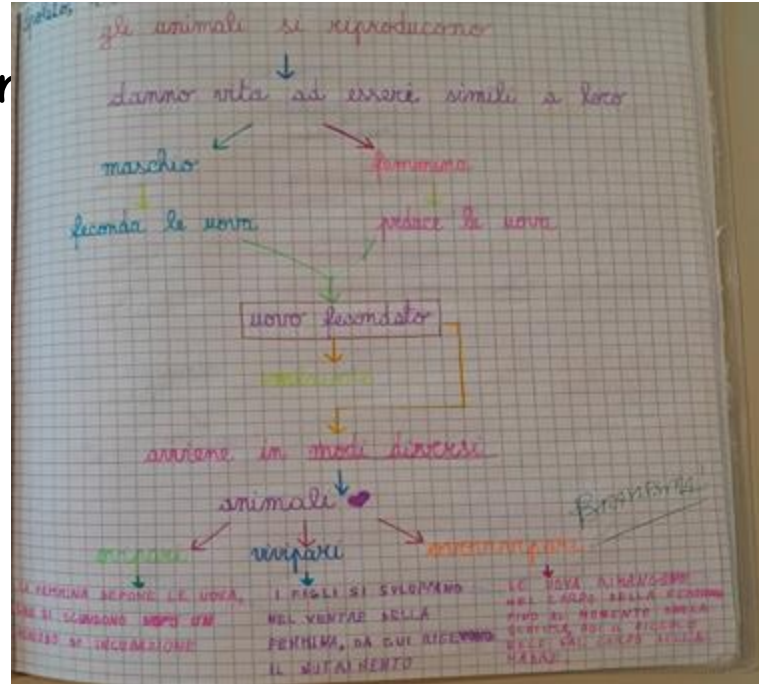 gli animali si riproducono
danno vita ad esseri simili a loro
maschio femmina
feconda le uova produce le uova
uovo fecondato
avviene in modi diversi
animali
ovipari vivipari ovovivipari
LA FEMMINA DEPONE LE UOVA,
CHE SI SCHIUDONO DOPO UN
PERIODO DI INCUBAZIONE
I FIGLI SI SVILUPPANO
NEL VENTRE DELLA
FEMMINA, DA CUI RICEVONO
IL NUTRIMENTO
LE UOVA RIMANGONO
NEL CORPO DELLA FEMMINA
FINO AL MOMENTO DELLA
SCHIUSA, POI IL PICCOLO
ESCE DAL CORPO DELLA
MADRE